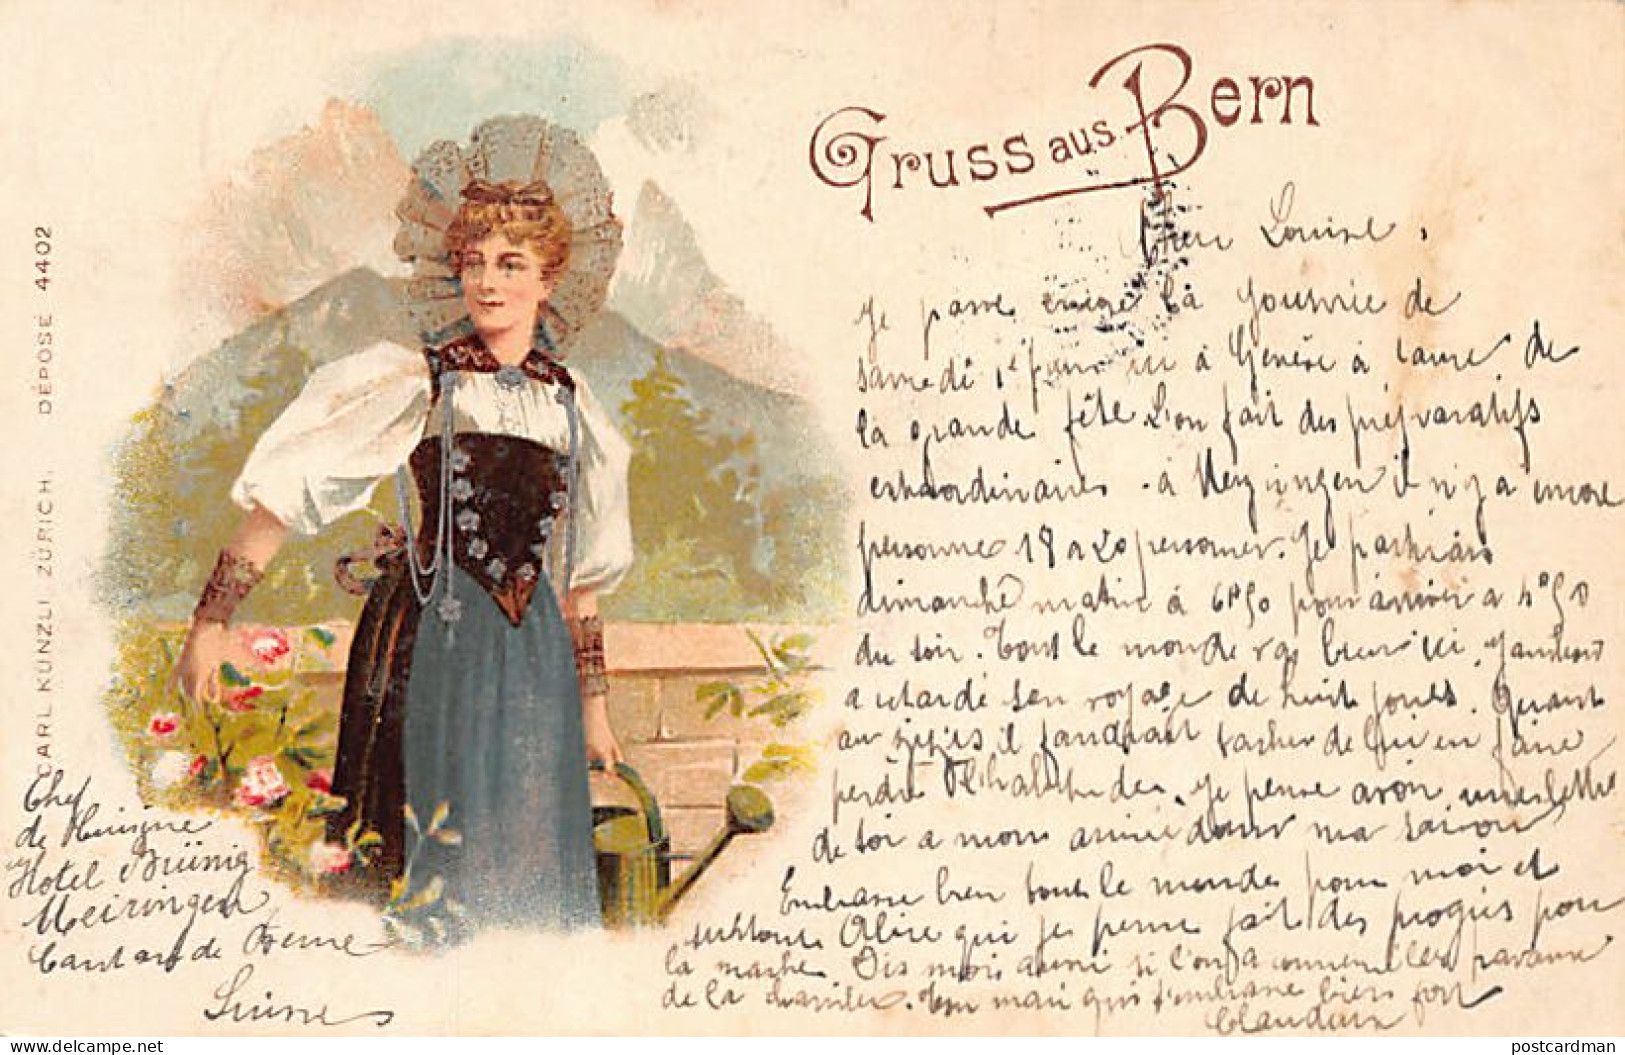 Gruss aus Bern
CARL KÜNZLI ZÜRICH. DÉPOSÉ 4402
Louise,
Je passe la de
samedi à Genève à cause de
la grande fête L'on fait des préparatifs
extraordinaires. à il n'y a encore
personne 18 a 20 personnes. Je partirais
dimanche matin à 6h50 pour arriver a 4h50
du soir. Tout le monde va bien ici.
a retardé son voyage de huit jours. Quant
au il faudrait tacher de lui en faire
perdre l'habitude. Je pense avoir une lettre
de toi a mon arrivée dans ma saison
Embrasse bien tout le monde pour moi et
surtout Alice qui je pense fait des progrès pour
la marche. Dis moi aussi si l'on a
de la Ton mari qui t'embrasse bien fort
Chef
de Cuisine
Hotel Brünig
Meiringen
Canton de Berne
Suisse
postcardman